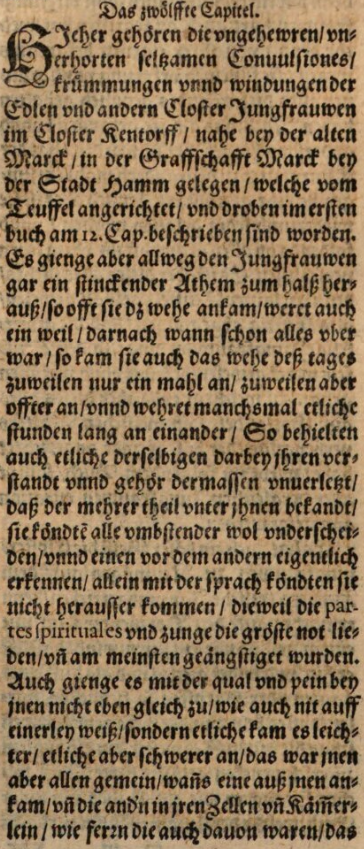 Das zwölffte Capitel.
HJeher gehören die vngehewren/ vn-
erhorten seltzamen Conuulsiones/
krümmungen vnnd windungen der
Edlen vnd andern Closter Jungfrauwen
im Closter Kentorff/ nahe bey der alten
Marck/ in der Graffschafft Marck bey
der Stadt Hamm gelegen/ welche vom
Teuffel angerichtet/ vnd droben im ersten
buch am 12. Cap. beschrieben sind worden.
Es gienge aber allweg den Jungfrauwen
gar ein stinckender Athem zum halß her-
auß/ so offt sie dz wehe ankam/ weret auch
ein weil/ darnach wann schon alles vber
war/ so kam sie auch das wehe deß tages
zuweilen nur ein mahl an/ zuweilen aber
offter an/ vnnd wehret manchsmal etliche
stunden lang an einander/ So behielten
auch etliche derselbigen darbey jhren ver-
standt vnnd gehör dermassen vnuerletzt/
daß der mehrer theil vnter jhnen bekandt/
sie köndtē alle vmbstender wol vnderschei-
den/ vnnd einen vor dem andern eigentlich
erkennen/ allein mit der sprach köndten sie
nicht herausser kommen/ dieweil die par-
tes spirituales vnd zunge die gröste not lie-
den/ vñ am meinsten geängstiget wurden.
Auch gienge es mit der qual vnd pein bey
jnen nicht eben gleich zu/ wie auch nit auff
einerley weiß/ sondern etliche kam es leich-
ter/ etliche aber schwerer an/ das war jnen
aber allen gemein/ wañs eine auß jnen an-
kam/ vñ die and'n in jren Zellen vñ Kam̃er-
lein/ wie ferꝛn die auch dauon waren/ das